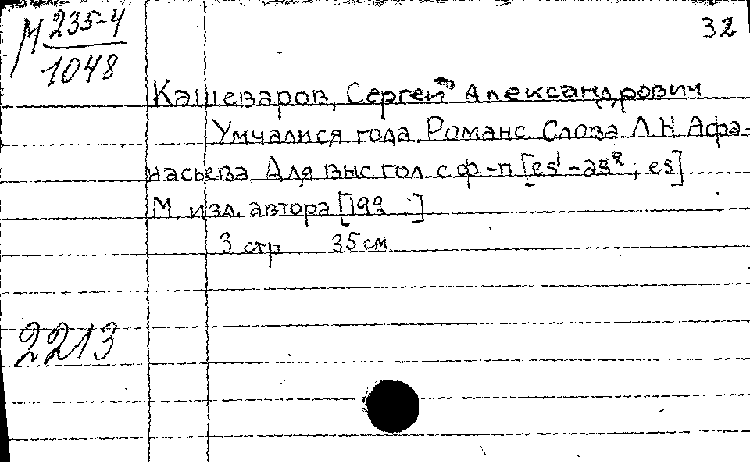 М 235-4
1048
32
Кашеваров, Сергей Александрович
Умчалися года. Романс Слова Л. Н. Афа-
насьева Для выс гол с ф-п [es¹-as²; es]
М. изд. автора [199 ]
3 стр 35 см
2213